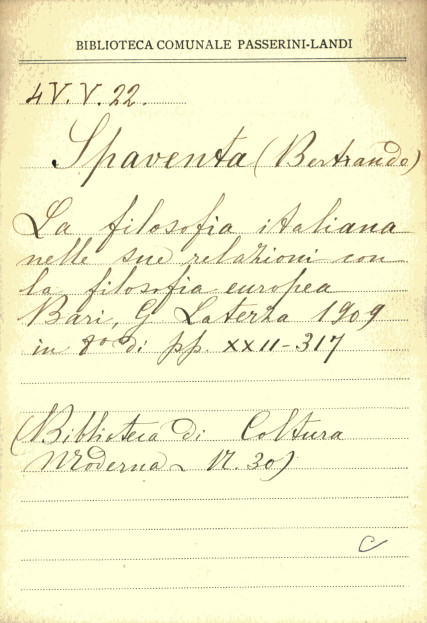 BIBLIOTECA COMUNALE PASSERINI-LANDI
4 V. V. 22.
Spaventa (Bertrando)
La filosofia italiana
nelle sue relazioni con
la filosofia europea
Bari, G Laterza 1909
in 8º di pp. XXII-317
(Biblioteca di Coltura
Moderna - N. 30)
C